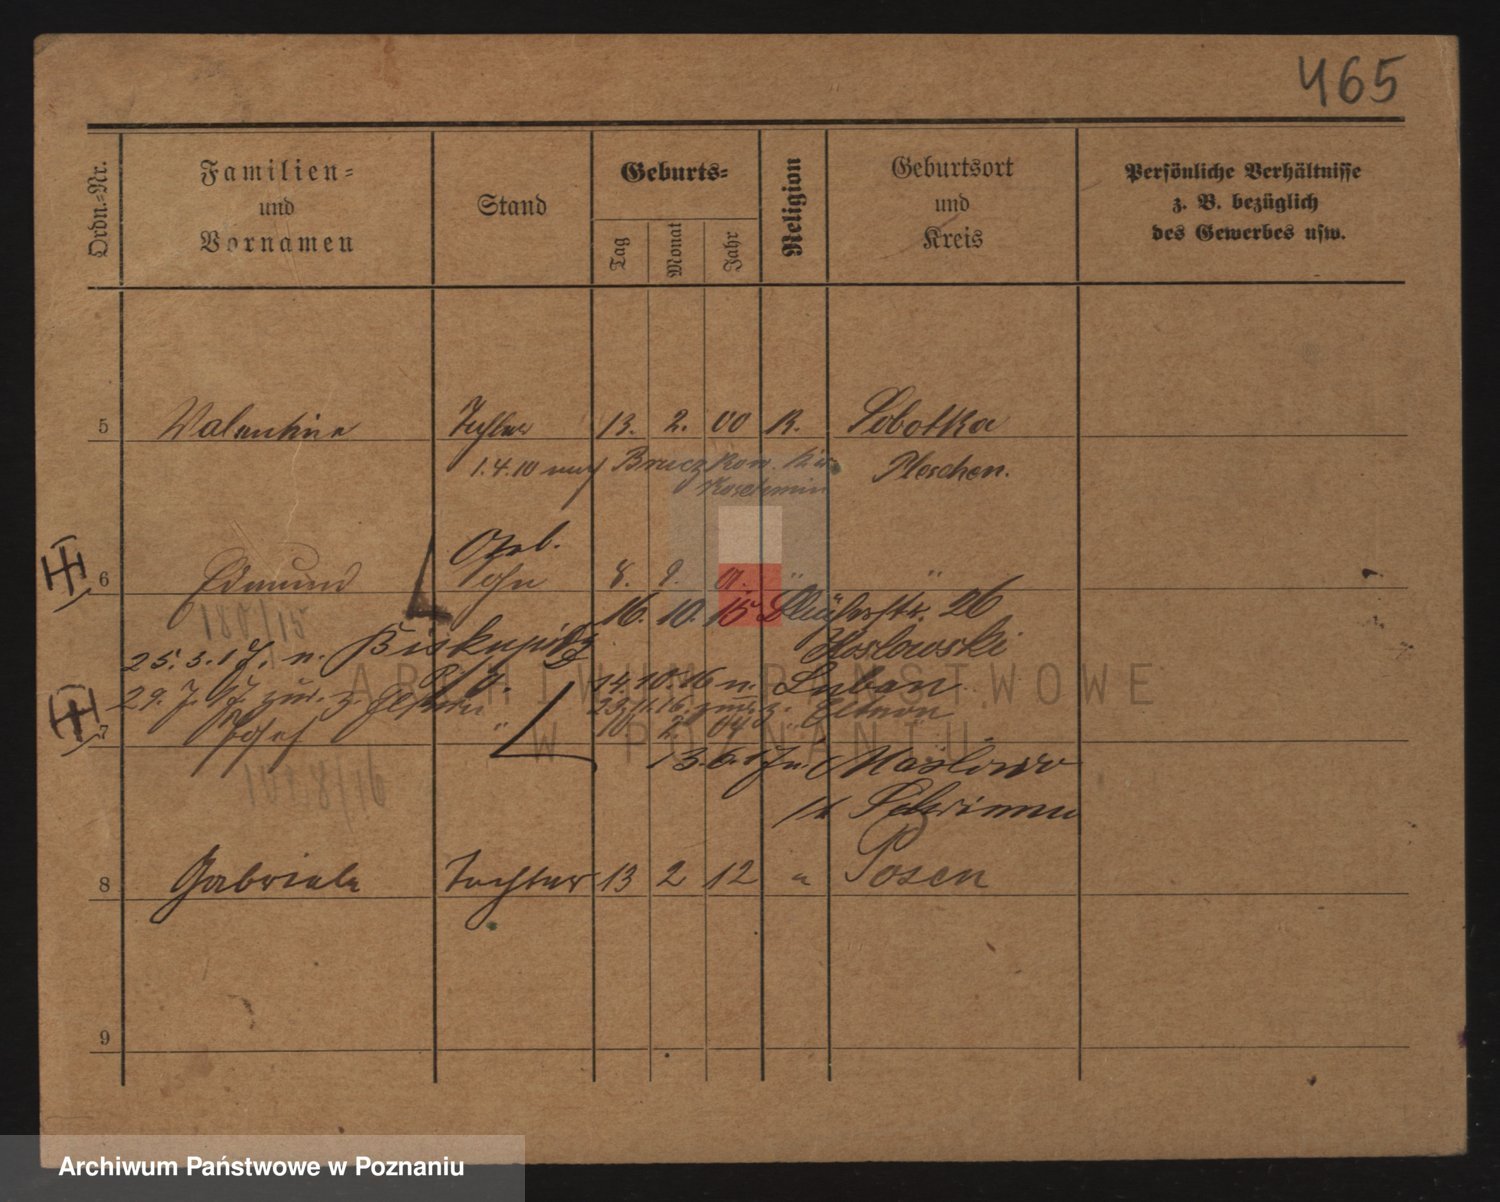 465
Ordn.-Nr.
Familien-
und
Vornamen
Stand
Geburts-
Tag
Monat
Jahr
Religion
Geburtsort
und
Kreis
Persönliche Verhältnisse
z. B. bezüglich
des Gewerbes usw.
5 Valentine Tochter 13. 2. 00 R. Sobotka
1.4.10 Pleschen.
Koschmin
Arb.
6 Edmund Sohn 8. 9. 01. " "
180/15 16. 10. 15 26
25. 3. 17. n. Biskupitz Koslowski
14. 10. 16 n. Luban
29. 7. 17 zur. z. Eltern 23. 11. 16. zur. z. Eltern
7 Josef " 2 04 "
13. 6. 17 n. Maslowo
1028/16
b Schrimm
8 Gabriele Tochter 13 2 12 " Posen
9
ARCHIWUM PAŃSTWOWE
W POZNANIU
Archiwum Państwowe w Poznaniu